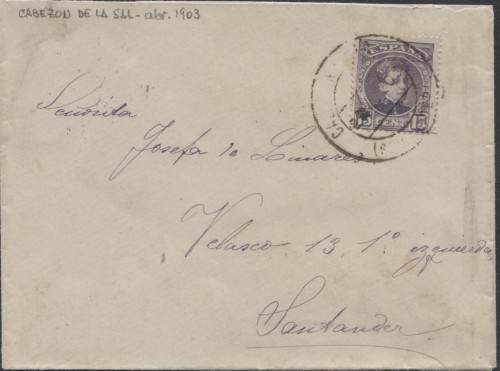 CABEZON DE LA SAL - abr. 1903
ESPAÑA
15 CENT 15
Señorita
Josefa de Linares
Velasco 13, 1º izquierda
Santander